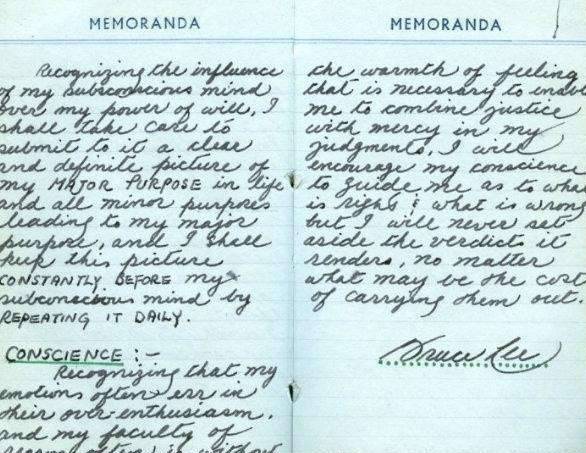 MEMORANDA
Recognizing the influence
of my subconscious mind
over my power of will, I
shall take care to
submit to it a clear
and definite picture of
my MAJOR PURPOSE in life
and all minor purposes
leading to my major
purpose, and I shall
keep this picture
CONSTANTLY BEFORE my
subconscious mind by
REPEATING IT DAILY.
CONSCIENCE :-
Recognizing that my
emotions often err in
their over-enthusiasm,
and my faculty of
reason often is without
MEMORANDA
the warmth of feeling
that is necessary to enable
me to combine justice
with mercy in my
judgments, I will
encourage my conscience
to guide me as to what
is right & what is wrong
but I will never set
aside the verdicts it
renders, no matter
what may be the cost
of carrying them out.
Bruce Lee